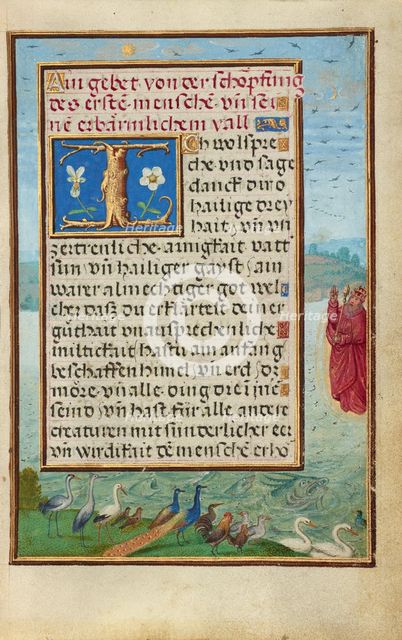 Ain gebet von der schöpfung
des erstē menschē vn̄ sei-
nē erbärmlichem vall
Ich wolspre
che vnd sage
danck dir o
hailige drey
hait vn̄ vn
zertrenliche ainigkait vatt
sun vn̄ hailiger gayst / ain
warer almechtiger got wel
cher daß du erklärtest deiner
güthait vn̄ ausprechenliche
miltikait hastu am anfang
beschaffen himel vn̄ erd / dz
möre vn̄ alle ding dre inē
seind vn̄ hast für alle andere
creaturen mit sünderlicher eer
vn̄ wirdikait dē menschē erho
Heritage